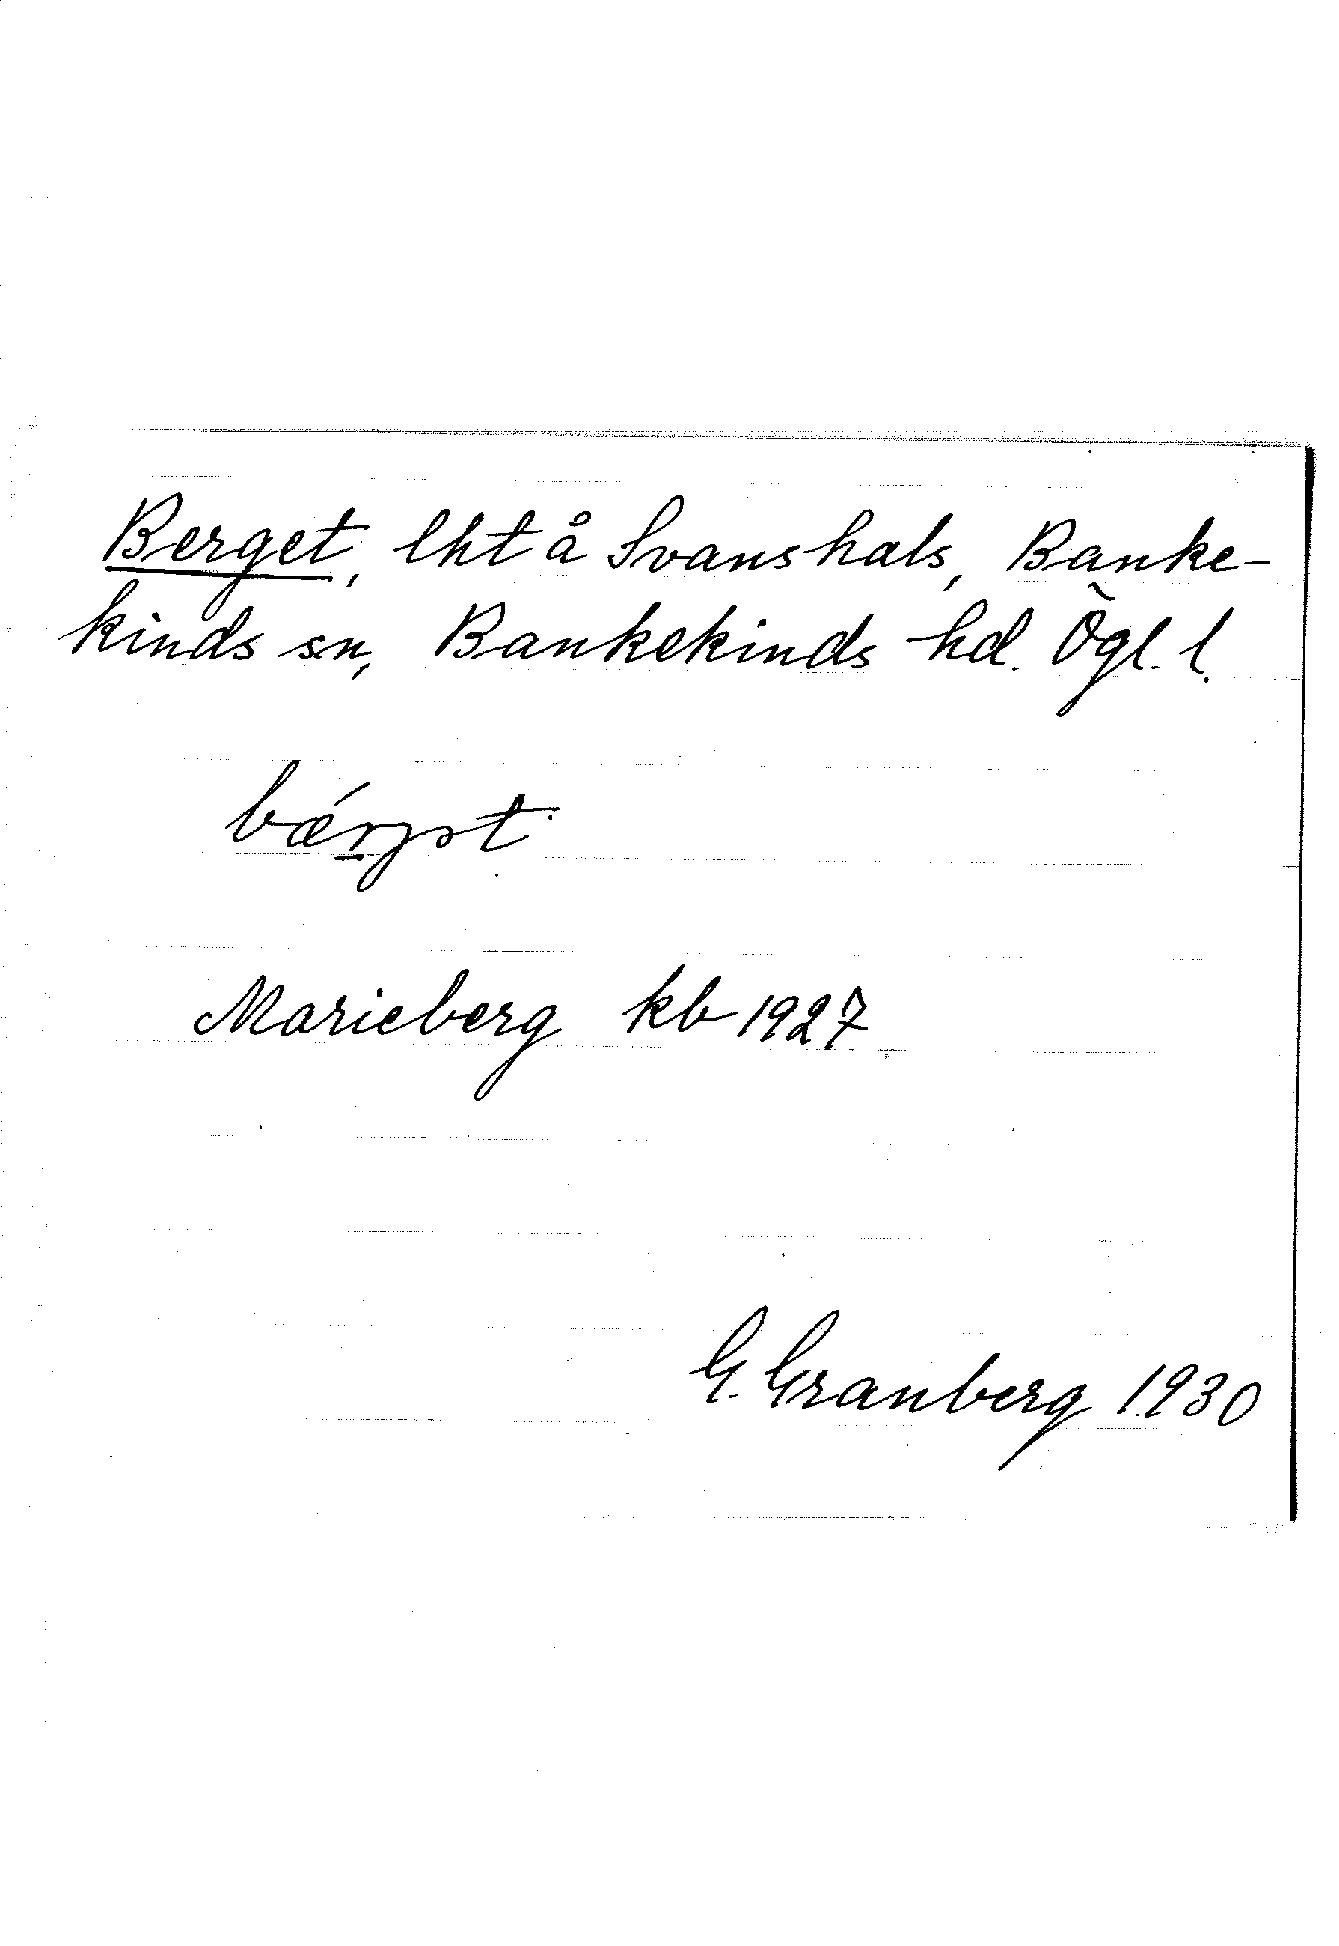 Berget, lht å Svanshals, Banke-
kinds sn, Bankekinds hd. Ögl. l.
bǽrjət
Marieberg kb 1927
G. Granberg 1930